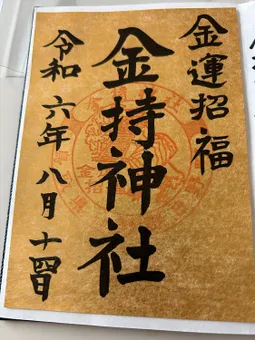 金運招福
金持神社
令和六年八月十四日